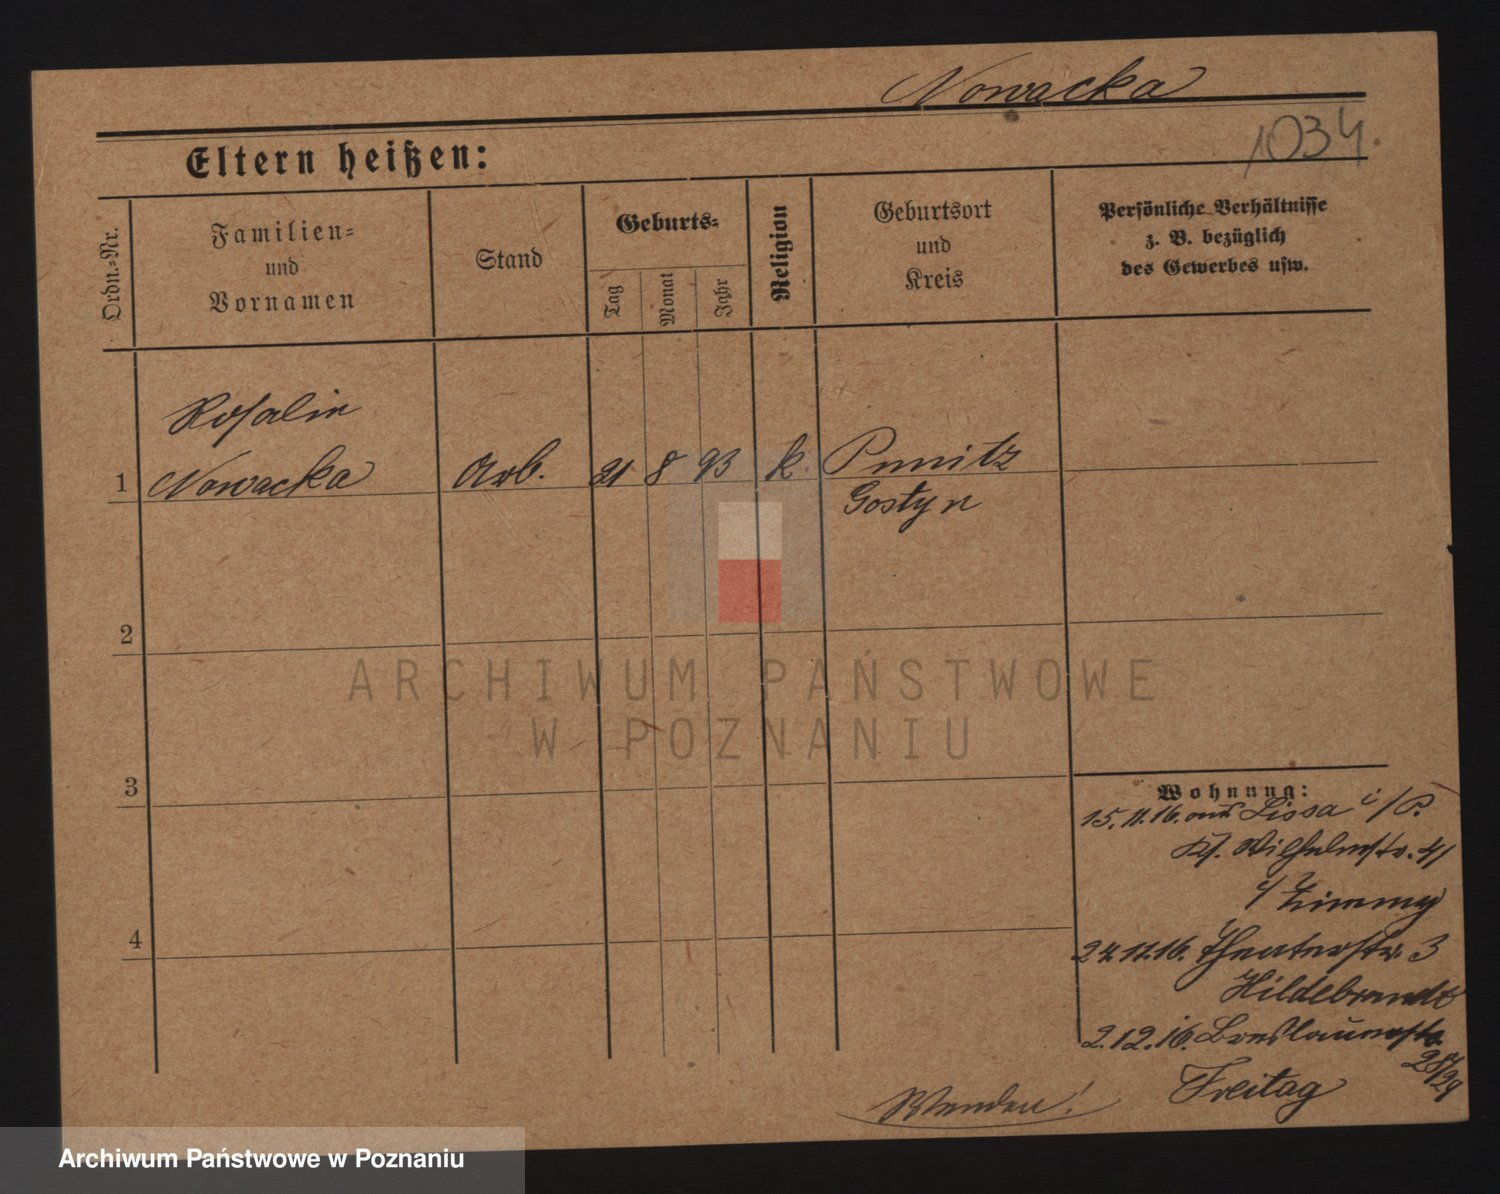 Nowacka
1034.
Eltern heißen:
Ordn.-Nr.
Familien- und Vornamen
Stand
Geburts-
Tag
Monat
Jahr
Religion
Geburtsort und Kreis
Persönliche Verhältnisse
z. B. bezüglich
des Gewerbes usw.
Rosalie
1 Nowacka Arb. 21 8 93 k. Punitz
Gostyn
2
3
4
Wohnung:
15.11.16. aus Lissa i/P.
Wilhelmstr. 41
24.11.16. Theaterstr. 3
Hildebrandt
2.12.16. Breslauerstr.
28/29
Freitag
Wenden!
ARCHIWUM PAŃSTWOWE
W POZNANIU
Archiwum Państwowe w Poznaniu